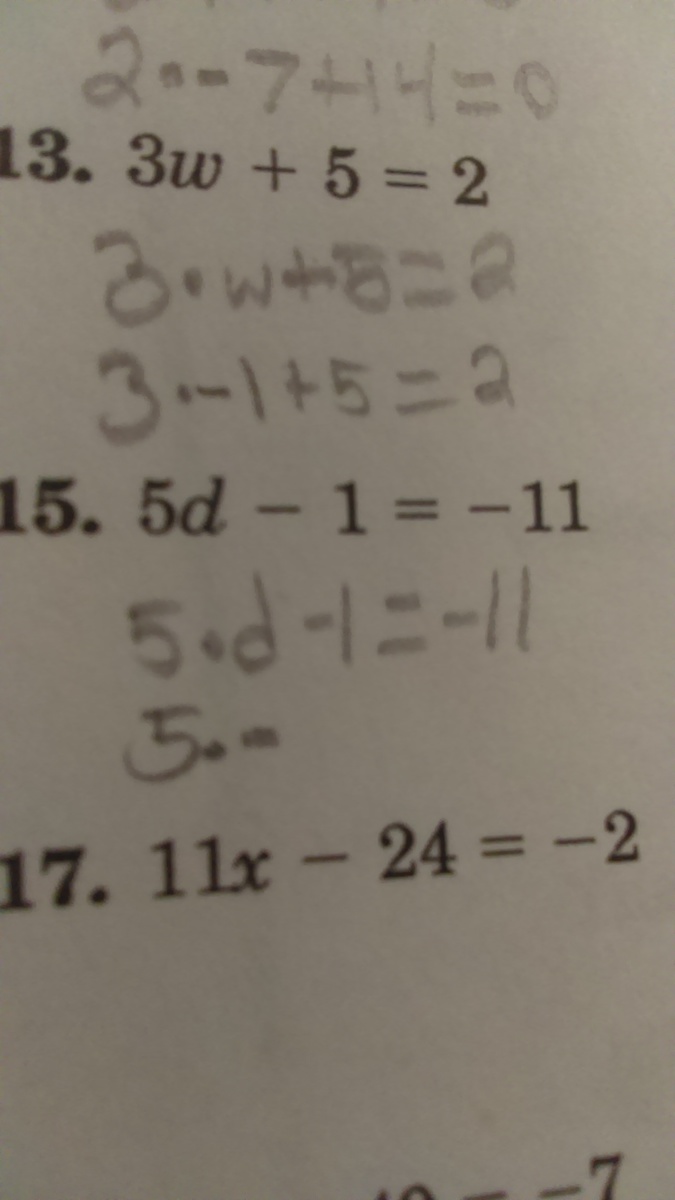 2 · -7 + 14 = 0
13. 3w + 5 = 2
3 · w + 5 = 2
3 · -1 + 5 = 2
15. 5d − 1 = −11
5 · d - 1 = -11
5 · -
17. 11x − 24 = −2
= −7